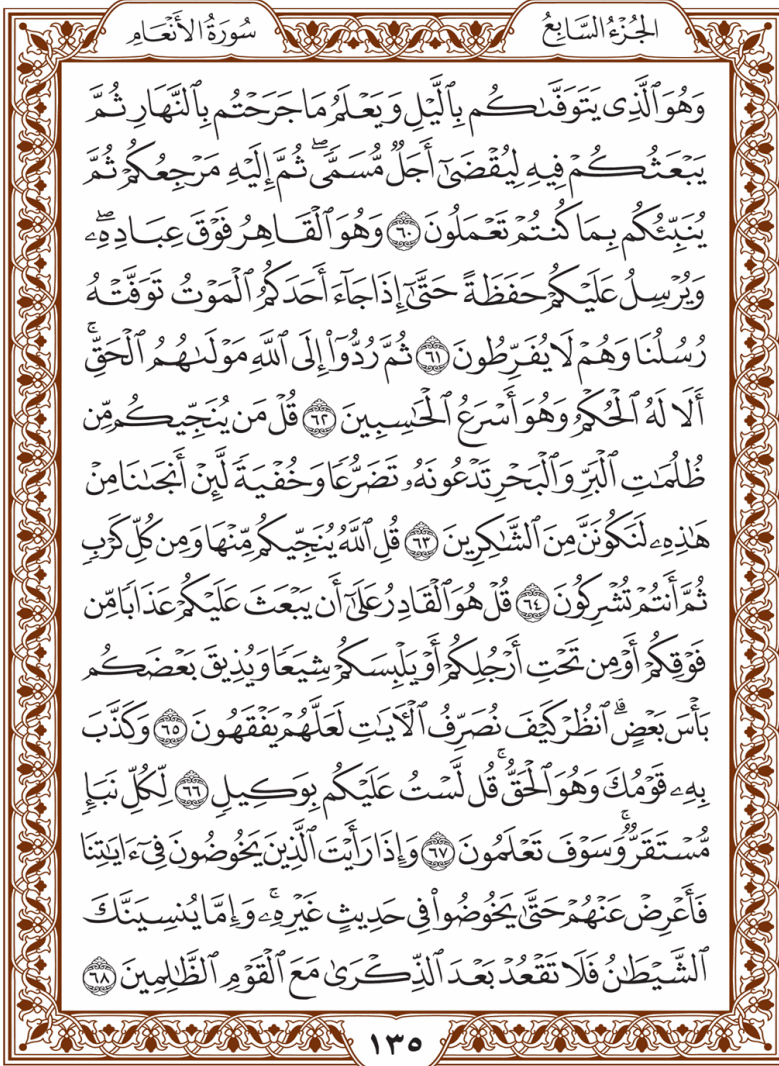 الجُزْءُ السَّابِعُ
سُورَةُ الأَنْعَامِ
وَهُوَ ٱلَّذِى يَتَوَفَّىٰكُم بِٱلَّيْلِ وَيَعْلَمُ مَا جَرَحْتُم بِٱلنَّهَارِ ثُمَّ
يَبْعَثُكُمْ فِيهِ لِيُقْضَىٰٓ أَجَلٌ مُّسَمًّى ۖ ثُمَّ إِلَيْهِ مَرْجِعُكُمْ ثُمَّ
يُنَبِّئُكُم بِمَا كُنتُمْ تَعْمَلُونَ ٦٠ وَهُوَ ٱلْقَاهِرُ فَوْقَ عِبَادِهِۦ ۖ
وَيُرْسِلُ عَلَيْكُمْ حَفَظَةً حَتَّىٰٓ إِذَا جَآءَ أَحَدَكُمُ ٱلْمَوْتُ تَوَفَّتْهُ
رُسُلُنَا وَهُمْ لَا يُفَرِّطُونَ ٦١ ثُمَّ رُدُّوٓا۟ إِلَى ٱللَّهِ مَوْلَىٰهُمُ ٱلْحَقِّ ۚ
أَلَا لَهُ ٱلْحُكْمُ وَهُوَ أَسْرَعُ ٱلْحَٰسِبِينَ ٦٢ قُلْ مَن يُنَجِّيكُم مِّن
ظُلُمَٰتِ ٱلْبَرِّ وَٱلْبَحْرِ تَدْعُونَهُۥ تَضَرُّعًا وَخُفْيَةً لَّئِنْ أَنجَىٰنَا مِنْ
هَٰذِهِۦ لَنَكُونَنَّ مِنَ ٱلشَّٰكِرِينَ ٦٣ قُلِ ٱللَّهُ يُنَجِّيكُم مِّنْهَا وَمِن كُلِّ كَرْبٍ
ثُمَّ أَنتُمْ تُشْرِكُونَ ٦٤ قُلْ هُوَ ٱلْقَادِرُ عَلَىٰٓ أَن يَبْعَثَ عَلَيْكُمْ عَذَابًا مِّن
فَوْقِكُمْ أَوْ مِن تَحْتِ أَرْجُلِكُمْ أَوْ يَلْبِسَكُمْ شِيَعًا وَيُذِيقَ بَعْضَكُم
بَأْسَ بَعْضٍ ۗ ٱنظُرْ كَيْفَ نُصَرِّفُ ٱلْءَايَٰتِ لَعَلَّهُمْ يَفْقَهُونَ ٦٥ وَكَذَّبَ
بِهِۦ قَوْمُكَ وَهُوَ ٱلْحَقُّ ۚ قُل لَّسْتُ عَلَيْكُم بِوَكِيلٍ ٦٦ لِّكُلِّ نَبَإٍ
مُّسْتَقَرٌّ ۚ وَسَوْفَ تَعْلَمُونَ ٦٧ وَإِذَا رَأَيْتَ ٱلَّذِينَ يَخُوضُونَ فِىٓ ءَايَٰتِنَا
فَأَعْرِضْ عَنْهُمْ حَتَّىٰ يَخُوضُوا۟ فِى حَدِيثٍ غَيْرِهِۦ ۚ وَإِمَّا يُنسِيَنَّكَ
ٱلشَّيْطَٰنُ فَلَا تَقْعُدْ بَعْدَ ٱلذِّكْرَىٰ مَعَ ٱلْقَوْمِ ٱلظَّٰلِمِينَ ٦٨
١٣٥